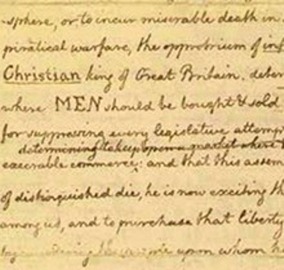 -sphere, or to incur miserable death in
piratical warfare, the opprobrium of inf
Christian king of Great Britain. deter
where MEN should be bought & sold
for suppressing every legislative attempt
determining to keep open a market where
execrable commerce: and that this assem
of distinguished die, he is now exciting th
among us, and to purchase that liberty
upon whom he